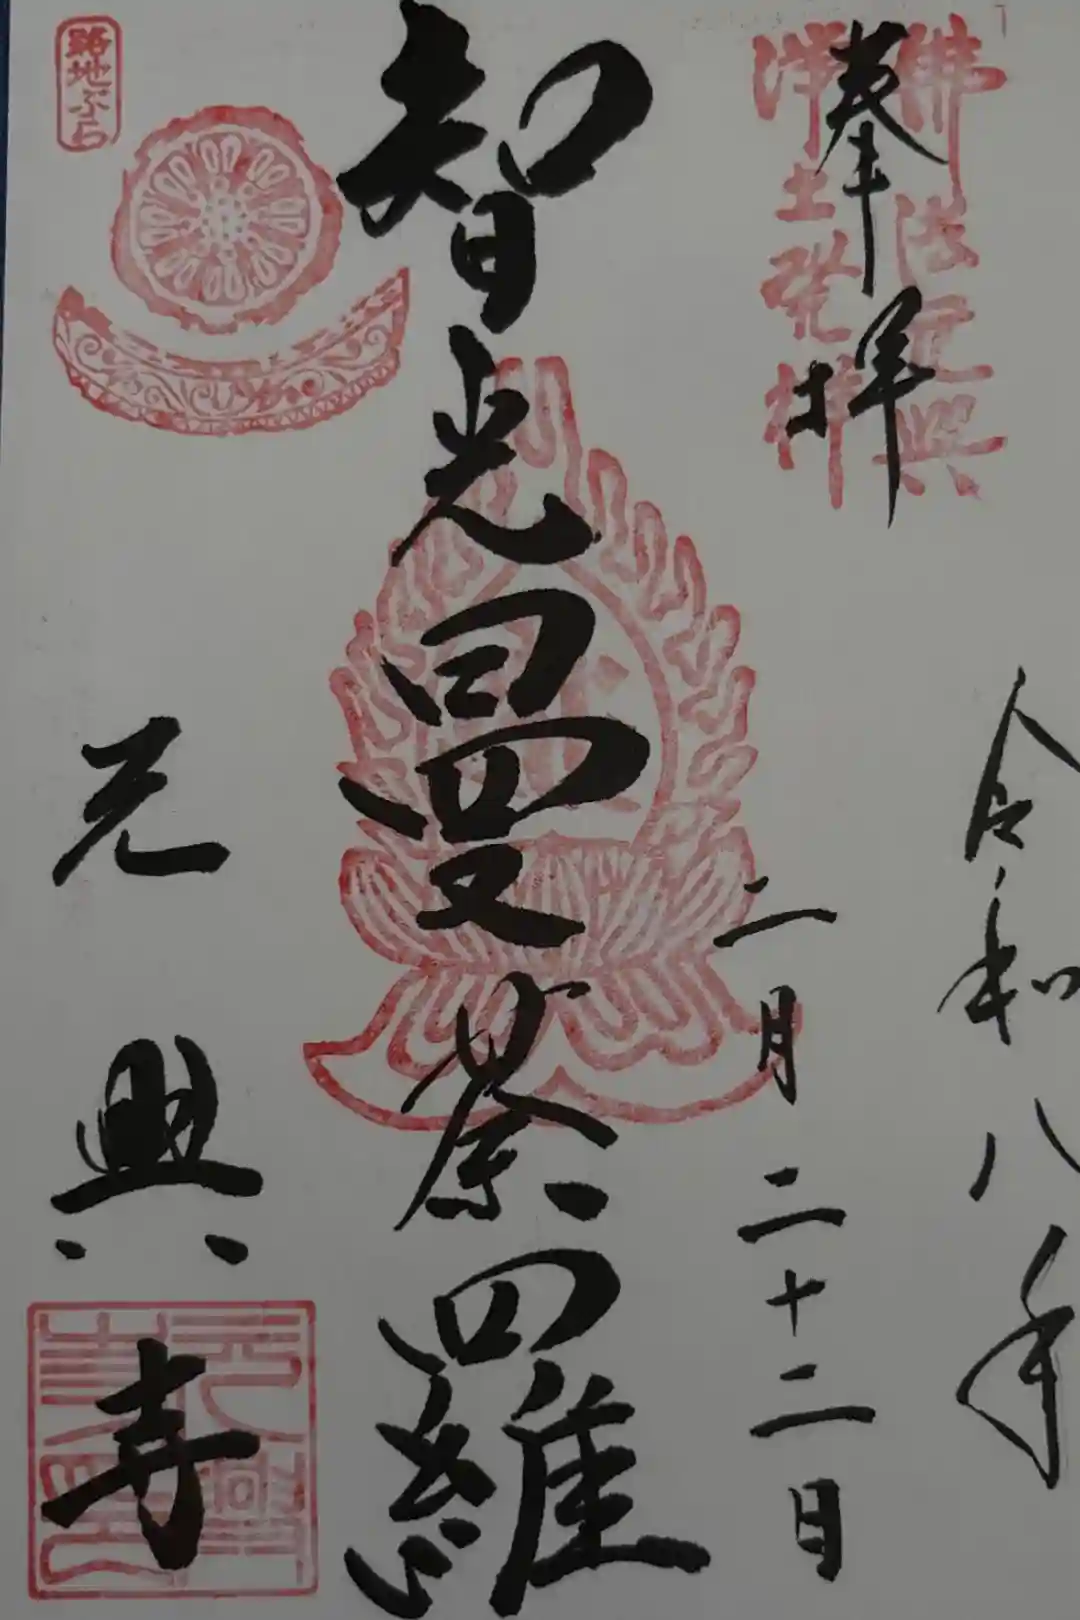 奉拝
佛法元興
浄土発祥
令和八年
二月二十二日
智光曼荼羅
路地ぶら
元興寺